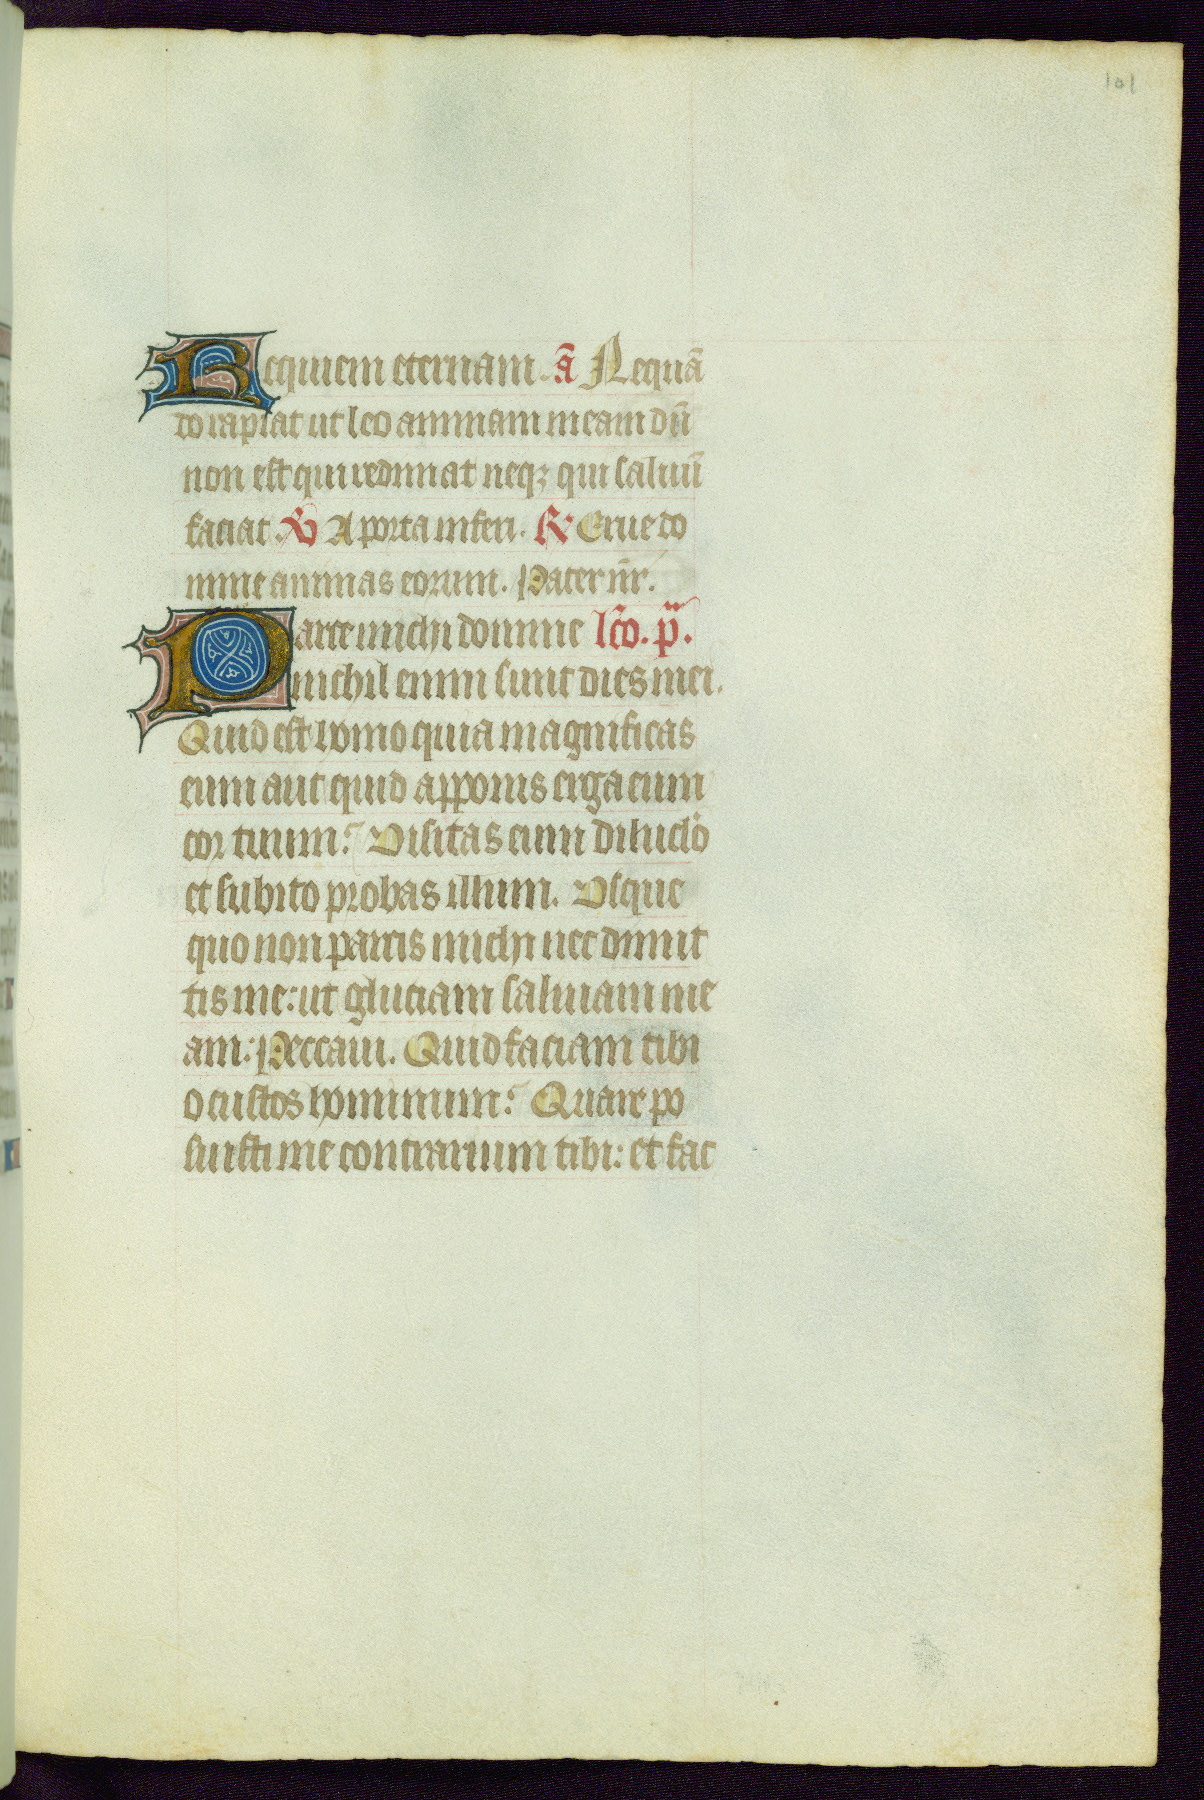 101
Requiem eternam. ā Nequā
do rapiat ut leo animam meam dū
non est qui redimat neqꝫ qui saluū
faciat. ℣ A porta inferi. ℟ Erue do
mine animas eorum. Pater nr̄.
Parce michi domine lc̄o. pª.
nichil enim sunt dies mei.
Quid est homo quia magnificas
eum aut quid apponis erga eum
cor tuum? Visitas eum diluclo
et subito probas illum. Vsque
quo non parcis michi nec dimit
tis me: ut gluciam saliuam me
am: Peccaui. Quid faciam tibi
o custos hominum? Quare po
suisti me contrarium tibi: et fac